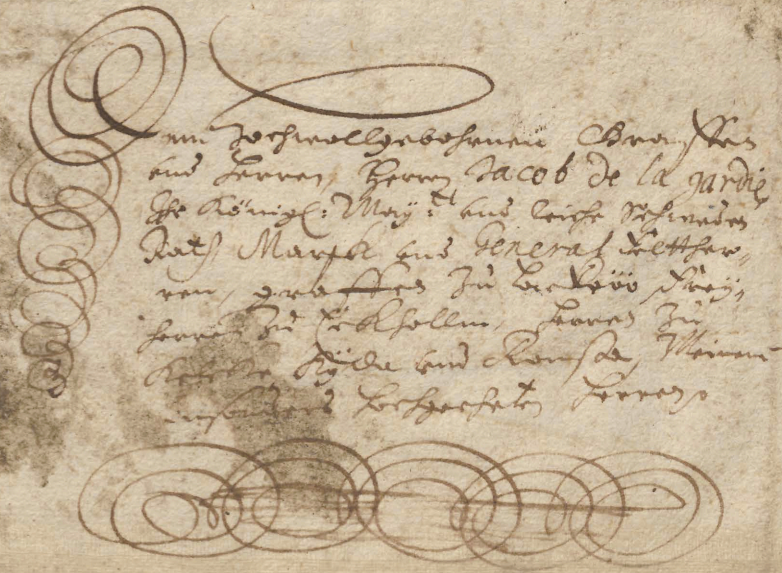 Dem Hochwollgebohrnen Graffen
und Herren, Herren Jacob De la gardie
Ihr Königl: May:tt und Reichs Schweden
Rath Marsk und General Feltther-
ren, graffen zu Lecköö, Frey-
herren zu Eckhollm, Herren zu
Kÿda und Runsa, Meinem
insonders Hochgeehrten Herren